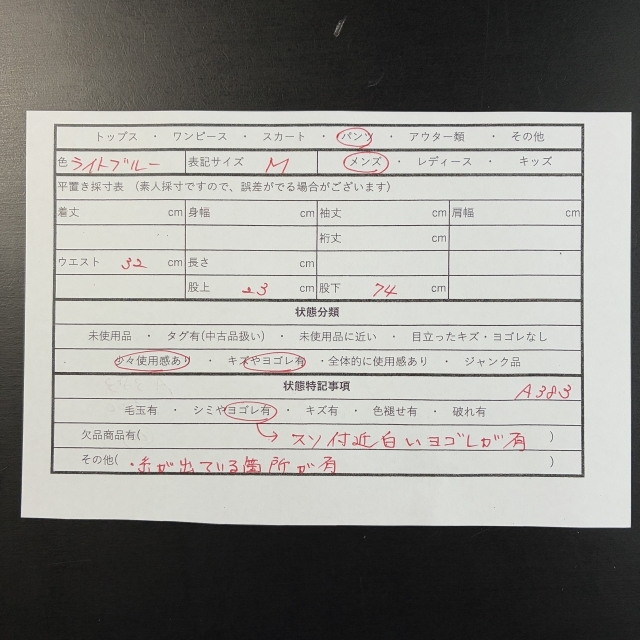 トップス ・ ワンピース ・ スカート ・ パンツ ・ アウター類 ・ その他
色 ライトブルー 表記サイズ M メンズ ・ レディース ・ キッズ
平置き採寸表 (素人採寸ですので、誤差がでる場合がございます)
着丈 cm 身幅 cm 袖丈 cm 肩幅 cm
裄丈 cm
ウエスト 32 cm 長さ cm
股上 23 cm 股下 74 cm
状態分類
未使用品 ・ タグ有(中古品扱い) ・ 未使用品に近い ・ 目立ったキズ・ヨゴレなし
少々使用感あり ・ キズやヨゴレ有 ・全体的に使用感あり ・ ジャンク品
状態特記事項 A383
毛玉有 ・ シミやヨゴレ有 ・ キズ有 ・ 色褪せ有 ・ 破れ有
欠品商品有( → スソ付近白いヨゴレが有 )
その他( ・糸が出ている箇所が有 )